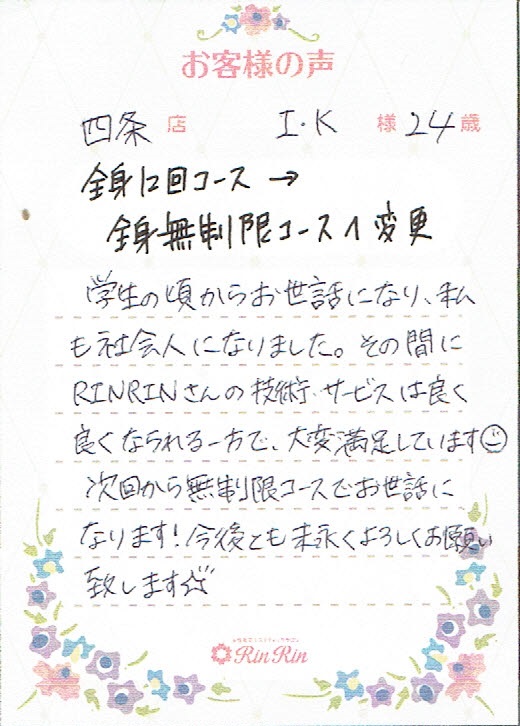 お客様の声
四条 店 I・K 様 24 歳
全身12回コース →
全身無制限コースへ変更
学生の頃からお世話になり、私
も社会人になりました。その間に
RINRINさんの技術・サービスは良く
良くなられる一方で、大変満足しています
次回から無制限コースでお世話に
なります!今後とも末永くよろしくお願い
致します☆
RinRin